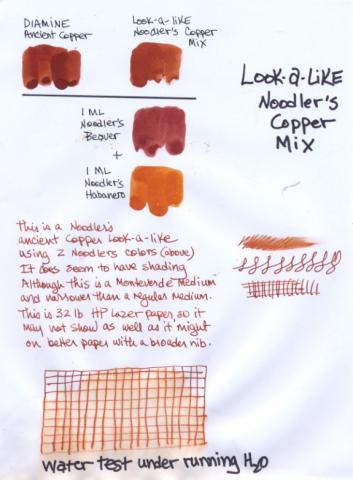 DIAMINE
Ancient Copper
Look-a-like
Noodler's Copper
Mix
Look-a-Like
Noodler's
Copper
Mix
1 ML
Noodler's
+
1 ML
Noodler's
Habanero
This is a Noodlers
ancient Copper Look-a-like
using 2 Noodlers colors (above)
It does seem to have shading
Although this is a Monteverde Medium
and narrower than a regular Medium.
This is 32 lb HP Lazer paper, so it
may not show as well as it might
on better paper with a broader nib.
Water test under running H2O